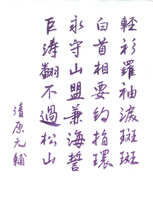 輕衫羅袖淚斑斑
白首相要約指環
永守山盟兼海誓
巨濤翻不過松山
清原元輔